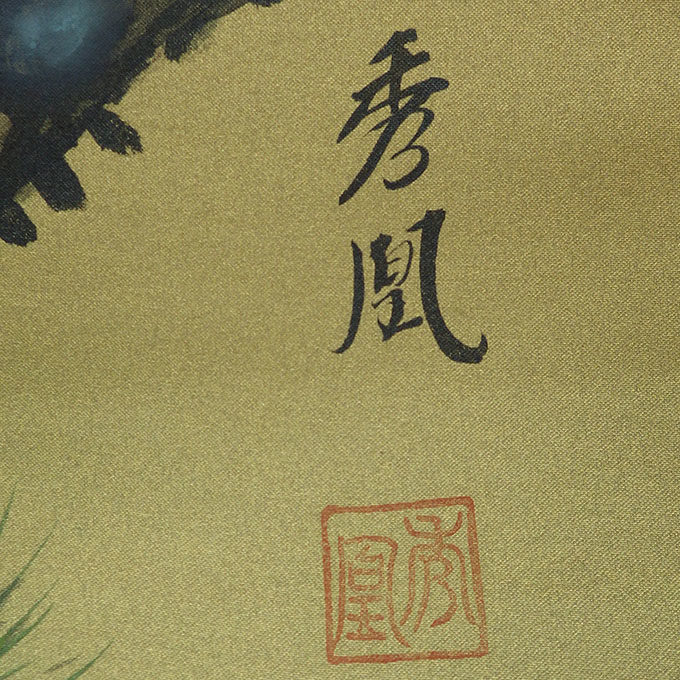 秀凰
秀凰